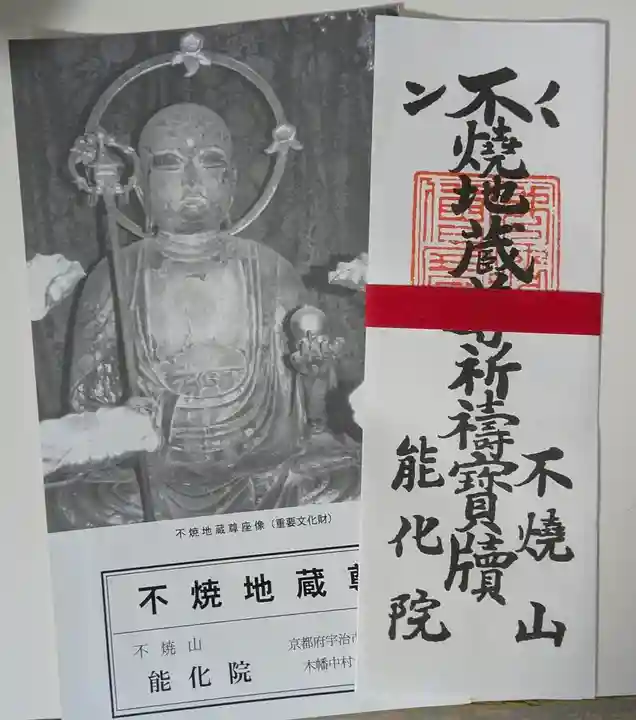 不焼地蔵尊座像（重要文化財）
不焼地蔵
不焼山
能化院
京都府宇治市
木幡中村
不燒地蔵
祈禱寶牘
不燒山
能化院